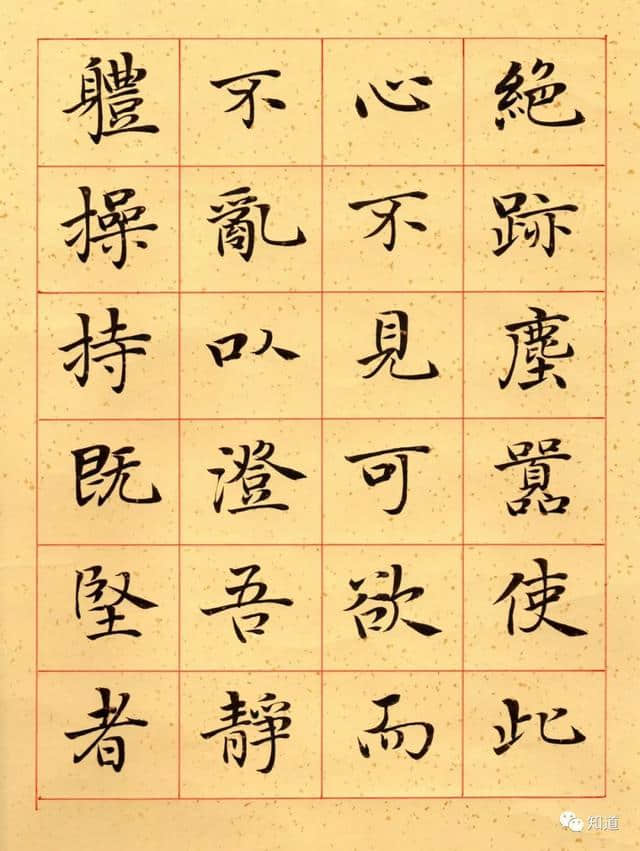 絕跡塵囂使此
心不見可欲而
不亂以澄吾靜
軆操持既堅者
知道